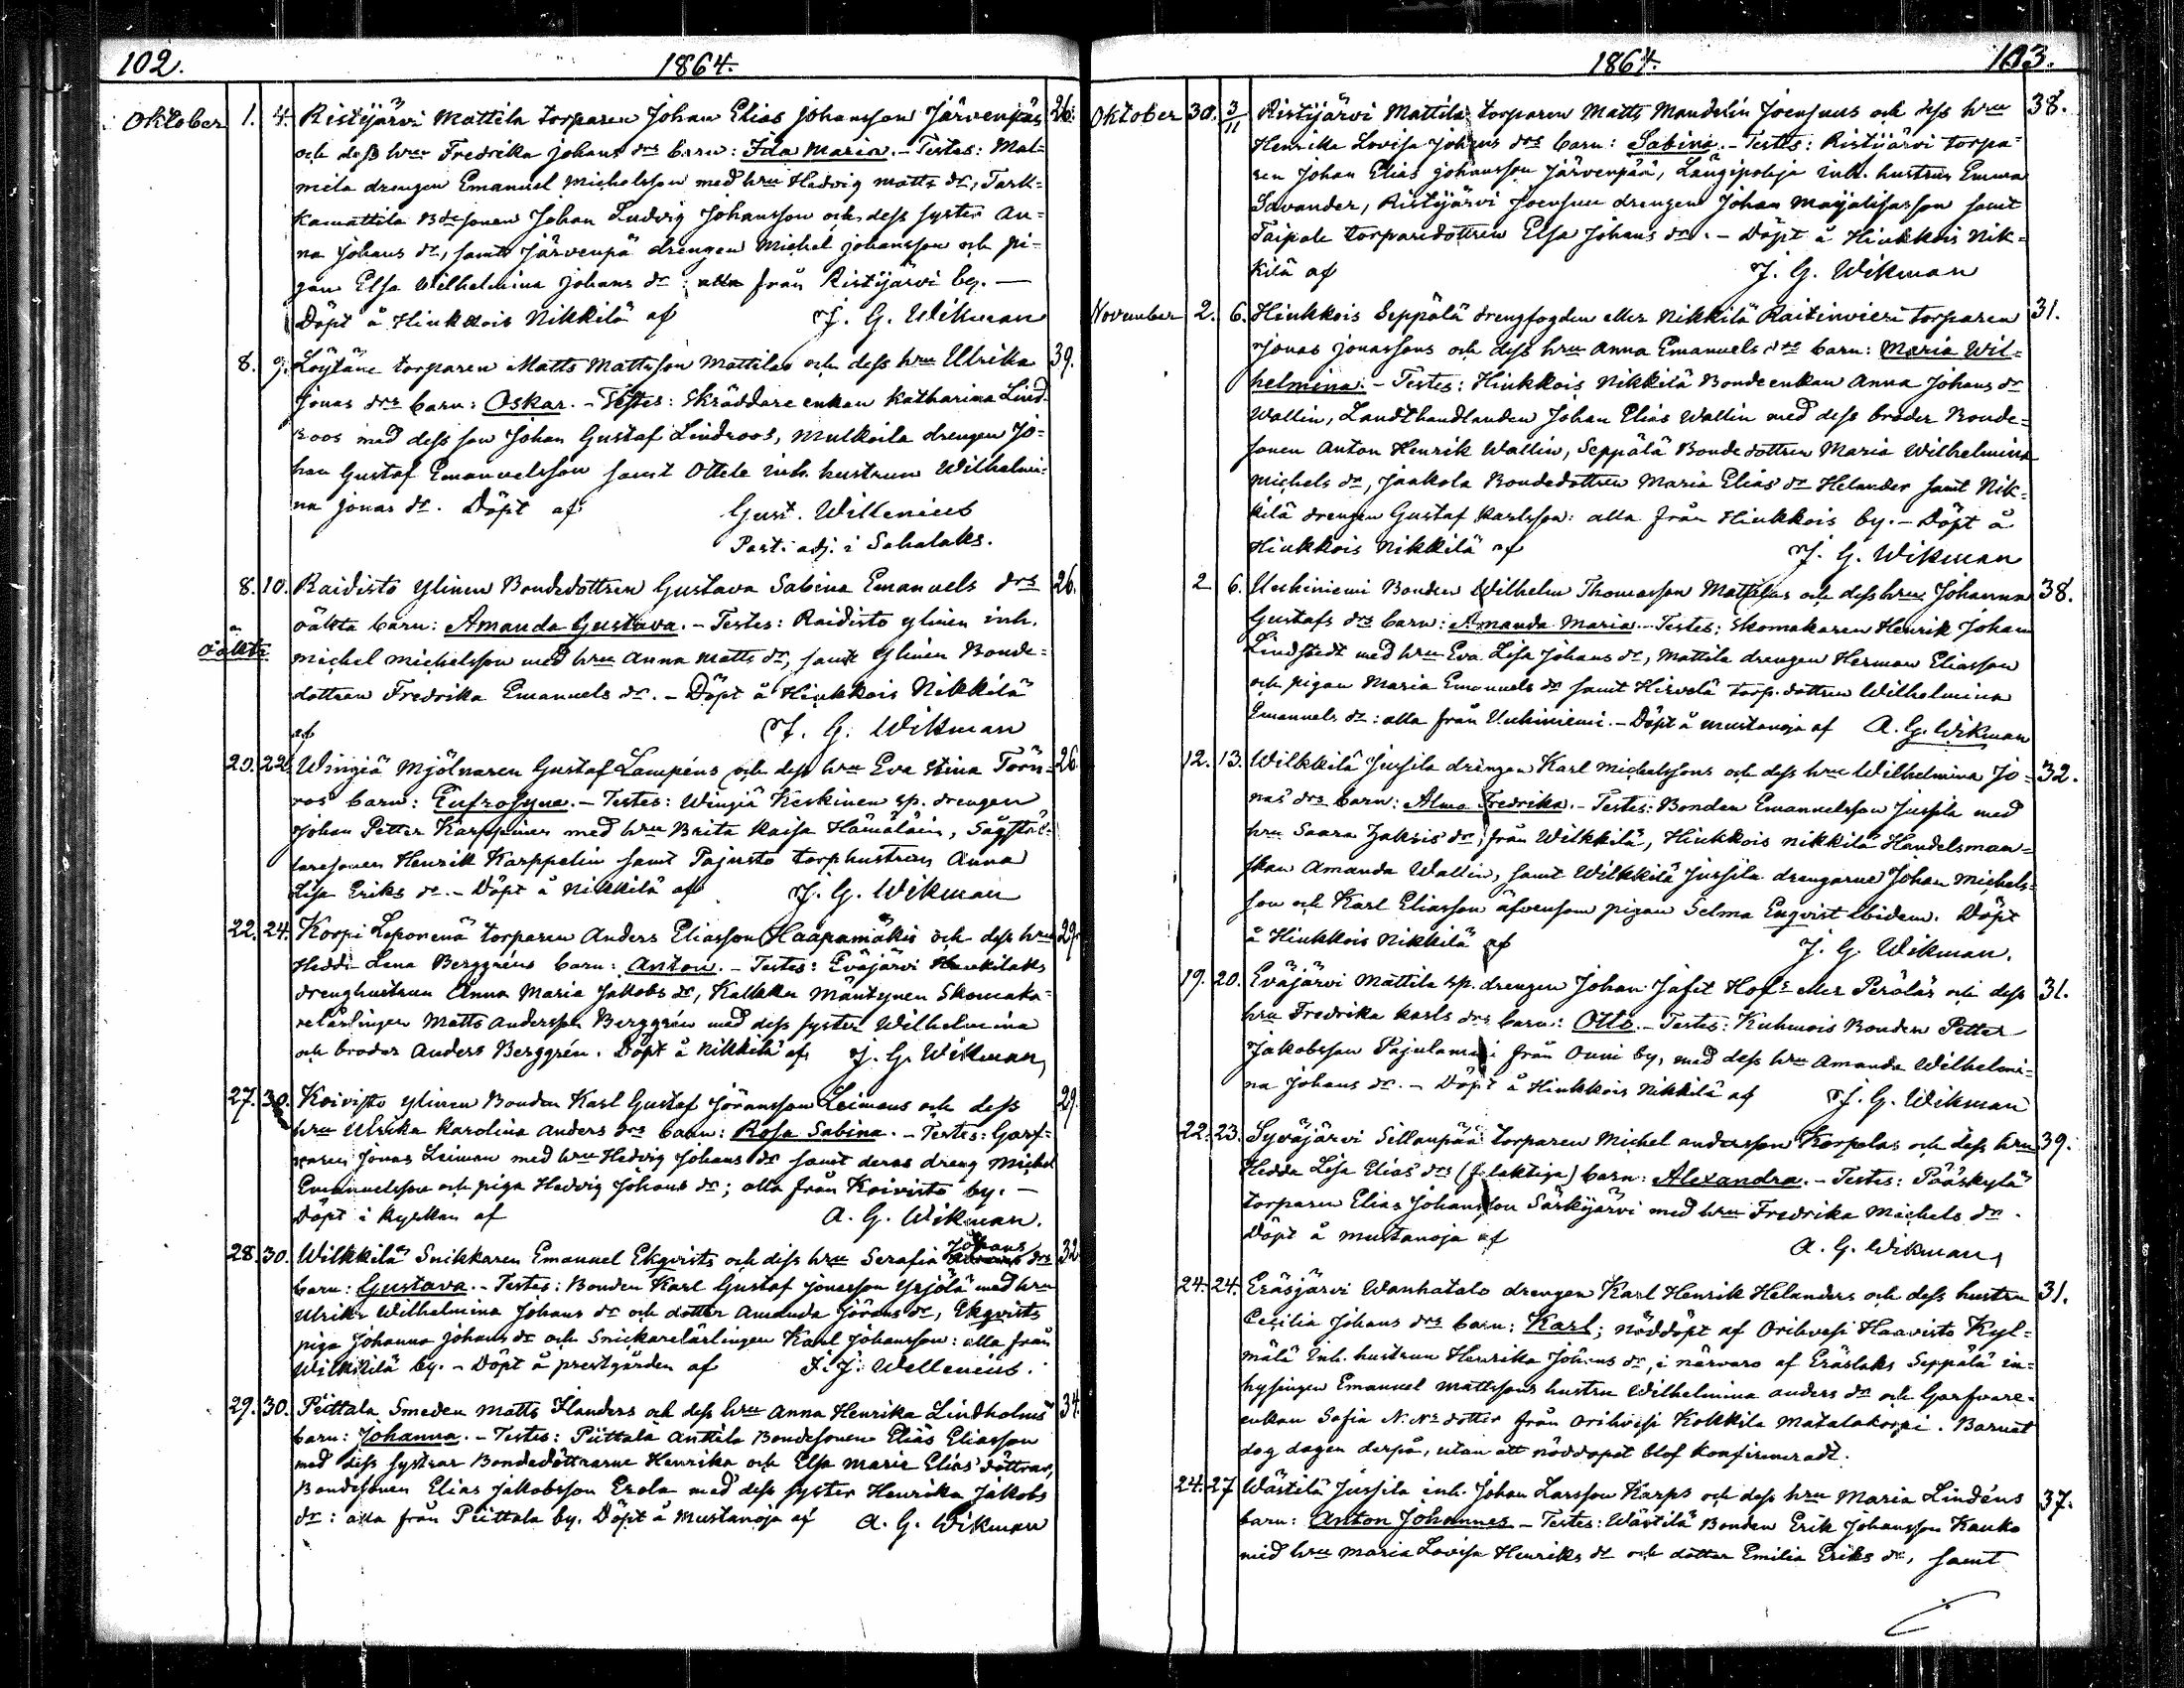 102.
1864.
Oktober 1. 4. Ristijärvi Mattila torparen Johan Elias Johansson Järvenpäs 26.
och dess hru Fredrika Johans drs barn: Ida Maria. - Testes: Mat-
mila drengen Emanuel Michelsson med hru Hedvig Matts dr, Tark-
kamattila Bdesonen Johan Ludvig Johansson och dess syster An-
na Johans dr, samt Järvenpä drengen Michel Johansson och pi-
gan Elsa Wilhelmina Johans dr: alla från Ristijärvi by. —
Döpt å Hinkkois Nikkilä af J. G. Wikman
8. 9. Löytäne torparen Matts Mattsson Mattilas och dess hru Ulrika 39.
Jonas drs barn: Oskar. - Testes: Skräddare enkan Katharina Lind-
roos med dess son Johan Gustaf Lindroos, Mulkoila drengen Jo-
han Gustaf Emanuelsson samt Ottele inh. hustrun Wilhelmi-
na Jonas dr. Döpt af Gust. Willenius
Past. adj. i Sahalaks.
8. 10. Raidisto Ylinen Bondedottren Gustava Sabina Emanuels drs 26.
oäkta barn: Amanda Gustava. - Testes: Raidisto Ylinen inh.
oäkta
Michel Michelsson med hru Anna Matts dr, samt Ylinen Bonde-
dottren Fredrika Emanuels dr. - Döpt å Hinkkois Nikkilä
af J. G. Wikman
20. 22. Wingiä Mjölnaren Gustaf Lampéns och dess hru Eva Stina Törn- 26
ros barn: Eufrosyne. - Testes: Wingiä Keskinen sp. drengen
Johan Petter Karppinen med hru Brita Kaisa Hämäläin, Sågstäl-
laresonen Henrik Karppelin samt Pajusto torphustrun Anna
Lisa Eriks dr. - Döpt å Nikkilä af J. G. Wikman
22. 24. Korpi Leponenä torparen Anders Eliasson Haapamäkis och dess hru 29.
Hedda Lena Berggréns barn: Anton. - Testes: Eväjärvi Haukilaks
drenghustrun Anna Maria Jakobs dr, Kalkku Mäntynen Skomaka-
relärlingen Matts Andersson Berggrén med dess syster Wilhelmina
och broder Anders Berggrén. Döpt å Nikkilä af J. G. Wikman
27. 30. Koivisto Ylinen Bonden Karl Gustaf Jöransson Leimans och dess 29.
hru Ulrika Karolina Anders drs barn: Rosa Sabina. - Testes: Garf-
varen Jonas Leiman med hru Hedvig Johans dr samt deras dreng Michel
Emanuelsson och piga Hedvig Johans dr; alla från Koivisto by. —
Döpt i kyrkan af A. G. Wikman.
28. 30. Wilkkilä Snikkaren Emanuel Ekqvists och dess hru Serafia Johans drs 32
barn: Gustava. - Testes: Bonden Karl Gustaf Jonasson Yrjölä med hru
Ulrika Wilhelmina Johans dr och dotter Amanda Jörans dr, Ekqvists
piga Johanna Johans dr och Snickarelärlingen Karl Johansson: alla från
Wilkkilä by. - Döpt å prestgården af F. J. Wellenius.
29. 30. Piittala Smeden Matts Flanders och dess hru Anna Henrika Lindholms 34
barn: Johanna. - Testes: Piittala Anttila Bondesonen Elias Eliasson
med dess systrar Bondedöttrarne Henrika och Elsa Maria Elias döttrar,
Bondesonen Elias Jakobsson Erola med dess syster Henrika Jakobs
dr: alla från Piittala by. Döpt å Mustanoja af A. G. Wikman
1864.
103.
Oktober 30. 3/11 Ristijärvi Mattila torparen Matts Mandelin Joensuus och dess hru 38.
Henrika Lovisa Johans drs barn: Sabina. - Testes: Ristijärvi torpa-
ren Johan Elias Johansson Järvenpää, Längipohja inh. hustrun Emma
Savander, Ristijärvi Joensuu drengen Johan Majalisasson samt
Taipale torparedottren Elsa Johans dr. - Döpt å Hinkkois Nik-
kilä af J. G. Wikman
November 2. 6. Hinkkois Seppälä drengfogden eller Nikkilä Raitinvieri torparen 31.
Jonas Jonassons och dess hru Anna Emanuels drs barn: Maria Wil-
helmina. - Testes: Hinkkois Nikkilä Bondeenkan Anna Johans dr
Wallin, Landthandlanden Johan Elias Wallin med dess broder Bonde-
sonen Anton Henrik Wallin, Seppälä Bondedottren Maria Wilhelmina
Michels dr, Jaakola Bondedottren Maria Elias dr Helander samt Nik-
kilä drengen Gustaf Karlsson: alla från Hinkkois by. - Döpt å
Hinkkois Nikkilä af J. G. Wikman
2 6. Uuhiniemi Bonden Wilhelm Thomasson Mattilas och dess hru Johanna 38.
Gustafs drs barn: Amanda Maria. - Testes: Skomakaren Henrik Johan
Lindstedt med hru Eva Lisa Johans dr, Mattila drengen Herman Eliasson
och pigan Maria Emanuels dr samt Hirvelä torp. dottren Wilhelmina
Emanuels dr: alla från Uuhiniemi. - Döpt å Mustanoja af A. G. Wikman
12. 13. Wilkkilä Jussila drängen Karl Michelssons och dess hru Wilhelmina Jo- 32.
nas drs barn: Alma Fredrika. - Testes: Bonden Emanuelsson Jussila med
hru Saara Zakris dr, från Wilkkilä, Hinkkois Nikkilä Handelsman-
skan Amanda Wallin, samt Wilkkilä Jussila drengarne Johan Michels-
son och Karl Eliasson äfvensom pigan Selma Enqvist ibidem. Döpt
å Hinkkois Nikkilä af J. G. Wikman.
19. 20. Eväjärvi Mattila sp. drengen Johan Jafet Hofs eller Perälas och dess 31.
hru Fredrika Karls drs barn: Otto. - Testes: Kuhmois Bonden Petter
Jakobsson Pajulammi från Ouni by, med dess hru Amanda Wilhelmi-
na Johans dr. - Döpt å Hinkkois Nikkilä af J. G. Wikman
22. 23. Syväjärvi Sillanpää torparen Michel Andersson Korpelas och dess hru 39.
Hedda Lisa Elias drs (felaktiga) barn: Alexandra. - Testes: Pääskylä
torparen Elias Johansson Särkijärvi med hru Fredrika Michels dr.
Döpt å Mustanoja af A. G. Wikman
24. 24. Eräsjärvi Wanhatalo drengen Karl Henrik Helanders och dess hustru 31.
Cecilia Johans drs barn: Karl; nöddöpt af Orihvesi Haavisto Kyl-
mälä Inh. hustrun Henrika Johans dr, i närvaro af Eräslaks Seppälä in-
hysingen Emanuel Mattssons hustru Wilhelmina Anders dr och Garfvare-
enkan Sofia N. Ns dotter från Orihvesi Kokkila Matalakorpi. Barnet
dog dagen derpå, utan att nöddopet blef konfirmeradt.
24. 27 Wästilä Jussila inh. Johan Larsson Karps och dess hru Maria Lindéns 37.
barn: Anton Johannes - Testes: Wästilä Bonden Erik Johansson Kauko
med hru Maria Lovisa Henriks dr och dotter Emilia Eriks dr, samt